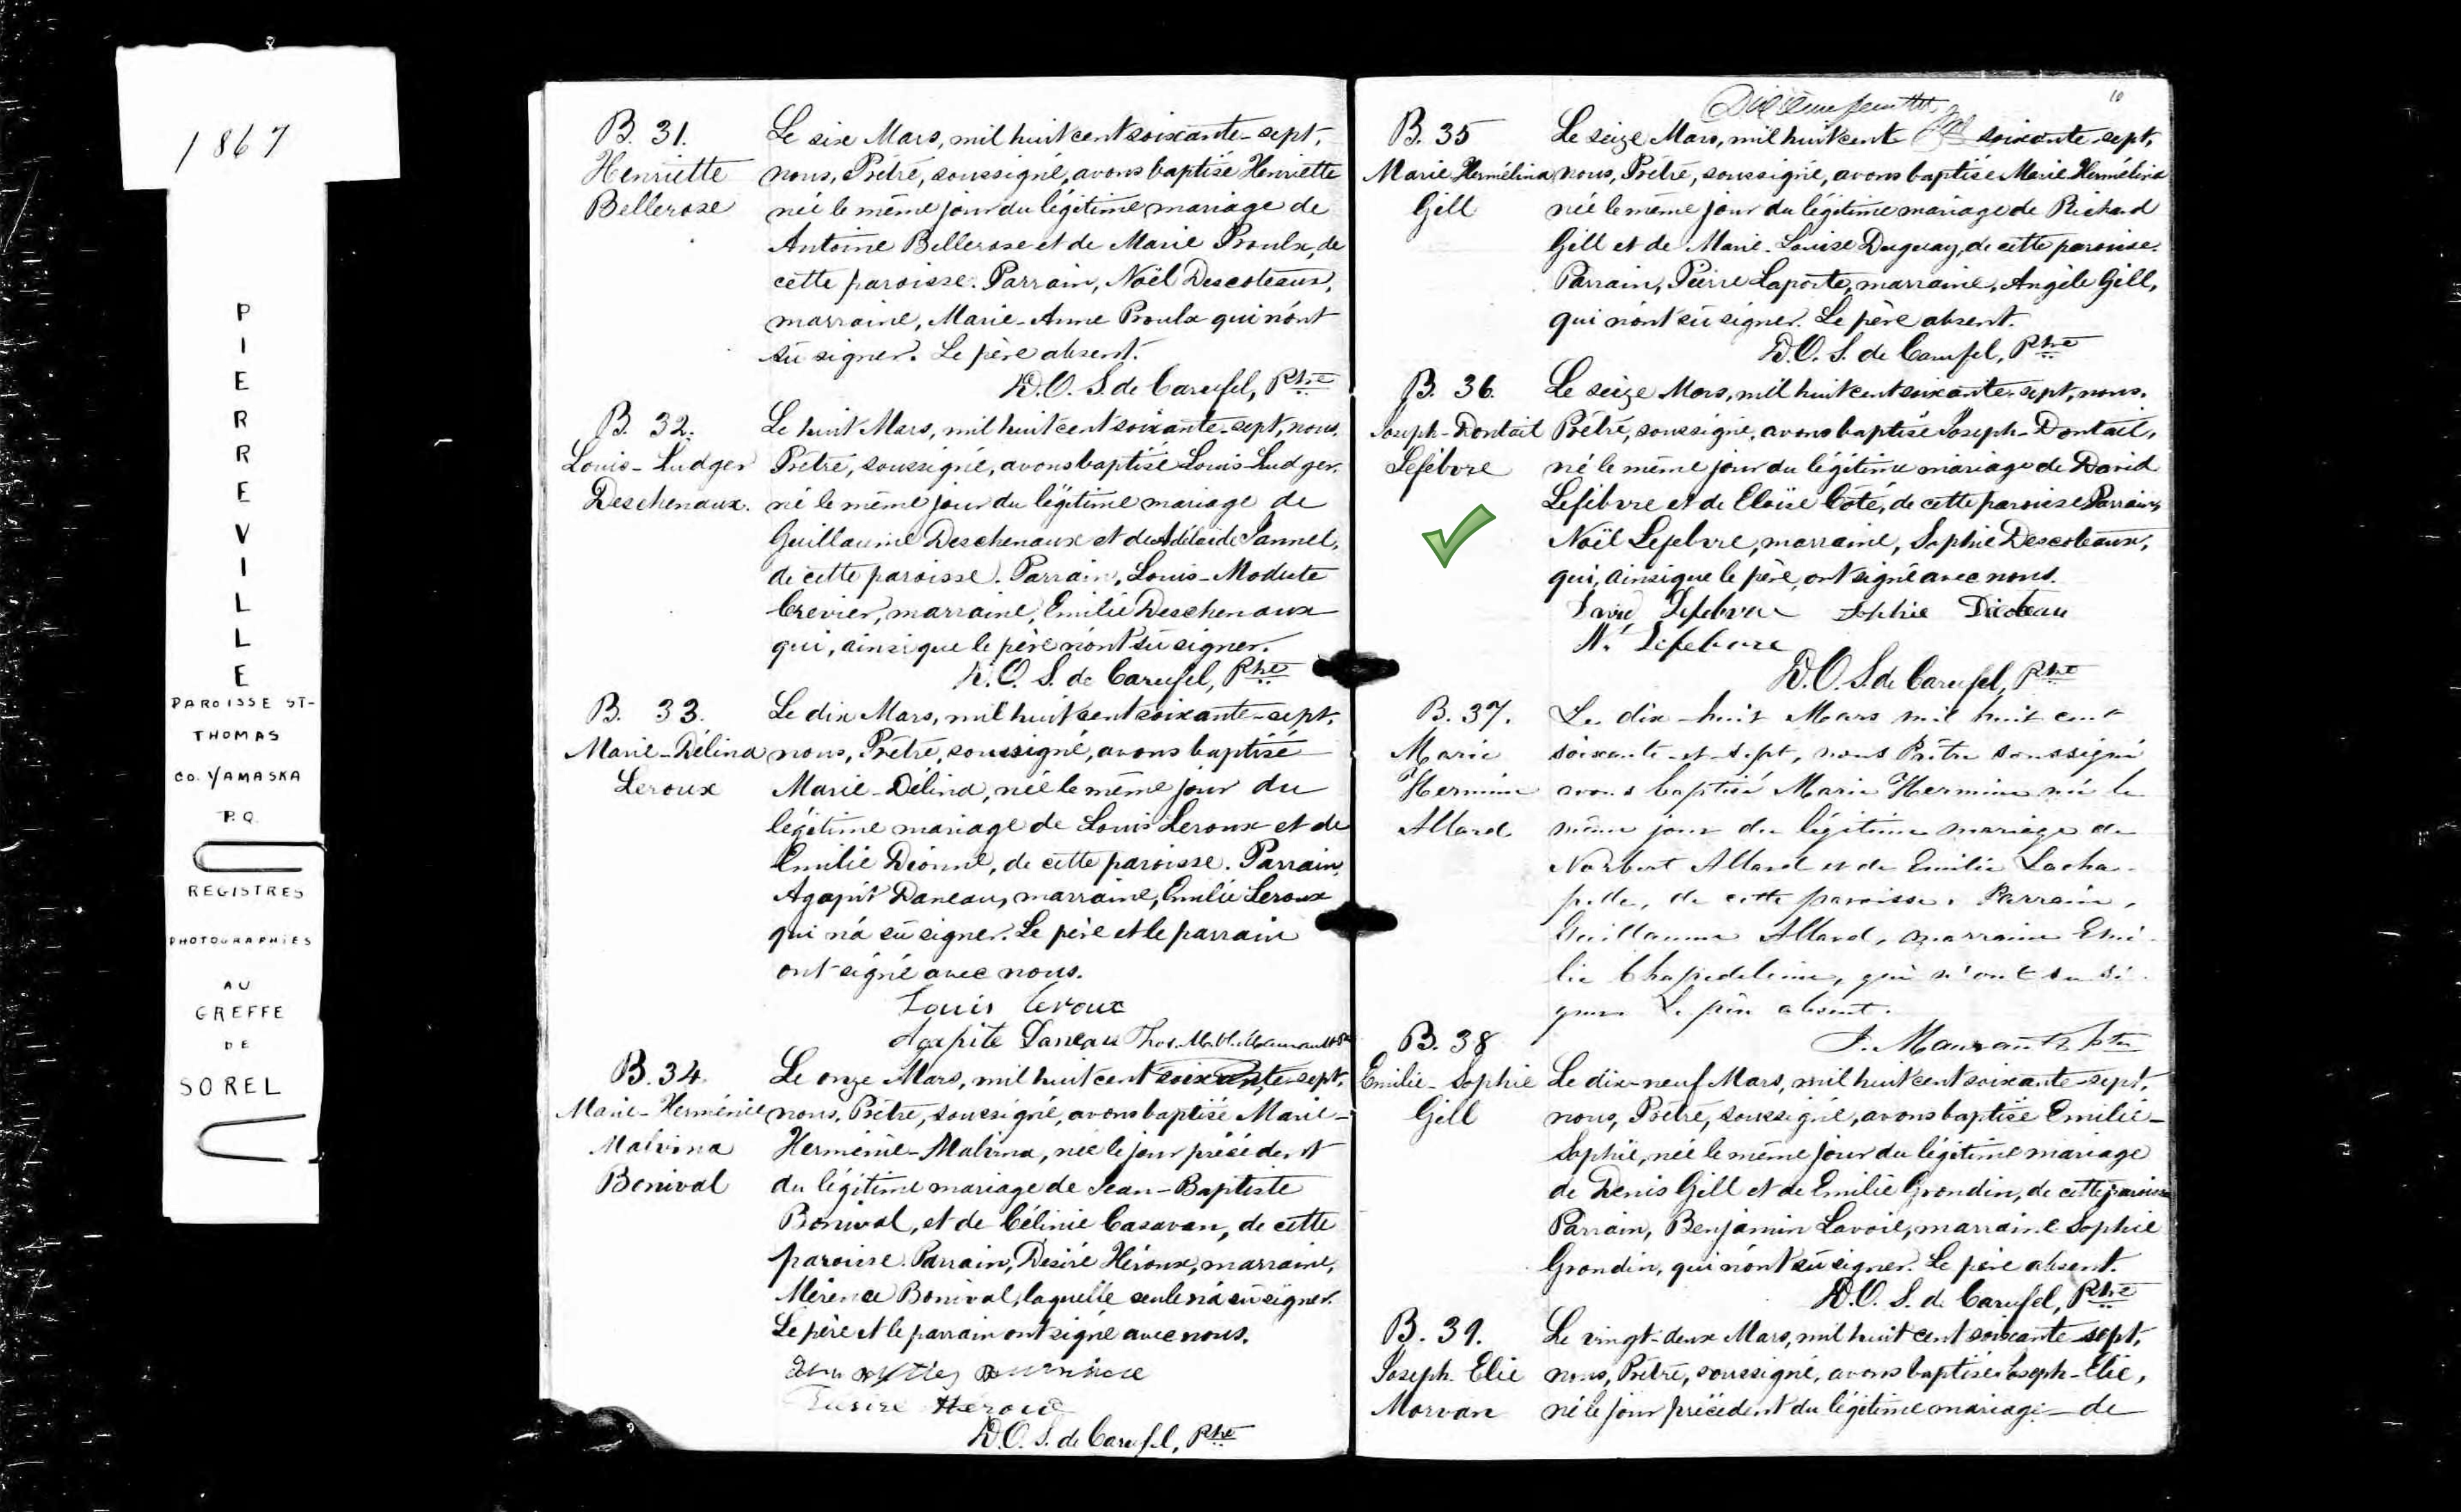 1867
PIERREVILLE
PAROISSE ST-
THOMAS
CO. YAMASKA
P.Q.
REGISTRES
PHOTOGRAPHIES
AU
GREFFE
DE
SOREL
B. 31.
Henriette
Bellerose
Le six Mars, mil huit cent soixante-sept,
nous, Prêtre, soussigné, avons baptisé Henriette
née le même jour du légitime mariage de
Antoine Bellerose et de Marie Proulx, de
cette paroisse. Parrain, Noël Descoteaux,
marraine, Marie-Anne Proulx qui n'ont
sû signer. Le père absent.
D.O.S. de Carufel, Ptre
B. 32.
Louis-Ludger
Deschenaux.
Le huit Mars, mil huit cent soixante-sept, nous,
Prêtre, soussigné, avons baptisé Louis-Ludger,
né le même jour du légitime mariage de
Guillaume Deschenaux et de Adélaïde Jannel,
de cette paroisse. Parrain, Louis-Modeste
Crevier, marraine, Emilie Deschenaux
qui, ainsi que le père n'ont sû signer.
D.O.S. de Carufel, Ptre
B. 33.
Marie-Délina
Leroux
Le dix Mars, mil huit cent soixante-sept,
nous, Prêtre, soussigné, avons baptisé
Marie-Délina, née le même jour du
légitime mariage de Louis Leroux et de
Emilie Dionne, de cette paroisse. Parrain,
Agapit Daneau, marraine, Emilie Leroux
qui n'a sû signer. Le père et le parrain
ont signé avec nous.
Louis Leroux
Agapite Daneau
B. 34.
Marie-Herménie
Malvina
Bonival
Le onze Mars, mil huit cent soixante-sept,
nous, Prêtre, soussigné, avons baptisé Marie-
Herménie-Malvina, née le jour précédent
du légitime mariage de Jean-Baptiste
Bonival, et de Célinie Casavan, de cette
paroisse. Parrain, Désiré Héroux, marraine,
Mérence Bonival, laquelle seule n'a sû signer.
Le père et le parrain ont signé avec nous.
Héroux
D.O.S. de Carufel, Ptre
10
Dixième feuillet
B. 35
Marie Hermélina
Gill
Le seize Mars, mil huit cent soixante-sept,
nous, Prêtre, soussigné, avons baptisé Marie Hermélina
née le même jour du légitime mariage de Richard
Gill et de Marie-Louise Duguay, de cette paroisse.
Parrain, Pierre Laporte, marraine, Angèle Gill,
qui n'ont sû signer. Le père absent.
D.O.S. de Carufel, Ptre
B. 36.
Joseph-Dontait
Lefebvre
Le seize Mars, mil huit cent soixante-sept, nous,
Prêtre, soussigné, avons baptisé Joseph-Dontait,
né le même jour du légitime mariage de David
Lefebvre et de Eloïse Côté, de cette paroisse. Parrain,
Noël Lefebvre, marraine, Sophie Descoteaux,
qui, ainsi que le père, ont signé avec nous.
David Lefebvre Sophie Dicoteau
N. Lefebvre
D.O.S. de Carufel, Ptre
B. 37.
Marie
Hermine
Allard
Le dix-huit Mars mil huit cent
soixante-et-sept, nous Prêtre soussigné
avons baptisé Marie Hermine née le
même jour du légitime mariage de
Norbert Allard et de Emilie Lacha-
pelle, de cette paroisse. Parrain,
Guillaume Allard, marraine Emi-
lie Chapedelaine, qui n'ont su si-
gner. Le père absent.
J. Maurault Ptre
B. 38
Emilie-Sophie
Gill
Le dix-neuf Mars, mil huit cent soixante-sept,
nous, Prêtre, soussigné, avons baptisé Emilie-
Sophie, née le même jour du légitime mariage
de Denis Gill et de Emilie Grondin, de cette paroisse
Parrain, Benjamin Lavoie, marraine Sophie
Grondin, qui n'ont sû signer. Le père absent.
D.O.S. de Carufel, Ptre
B. 39.
Joseph Elie
Morvan
Le vingt-deux Mars, mil huit cent soixante-sept,
nous, Prêtre, soussigné, avons baptisé Joseph-Elie,
né le jour précédent du légitime mariage de